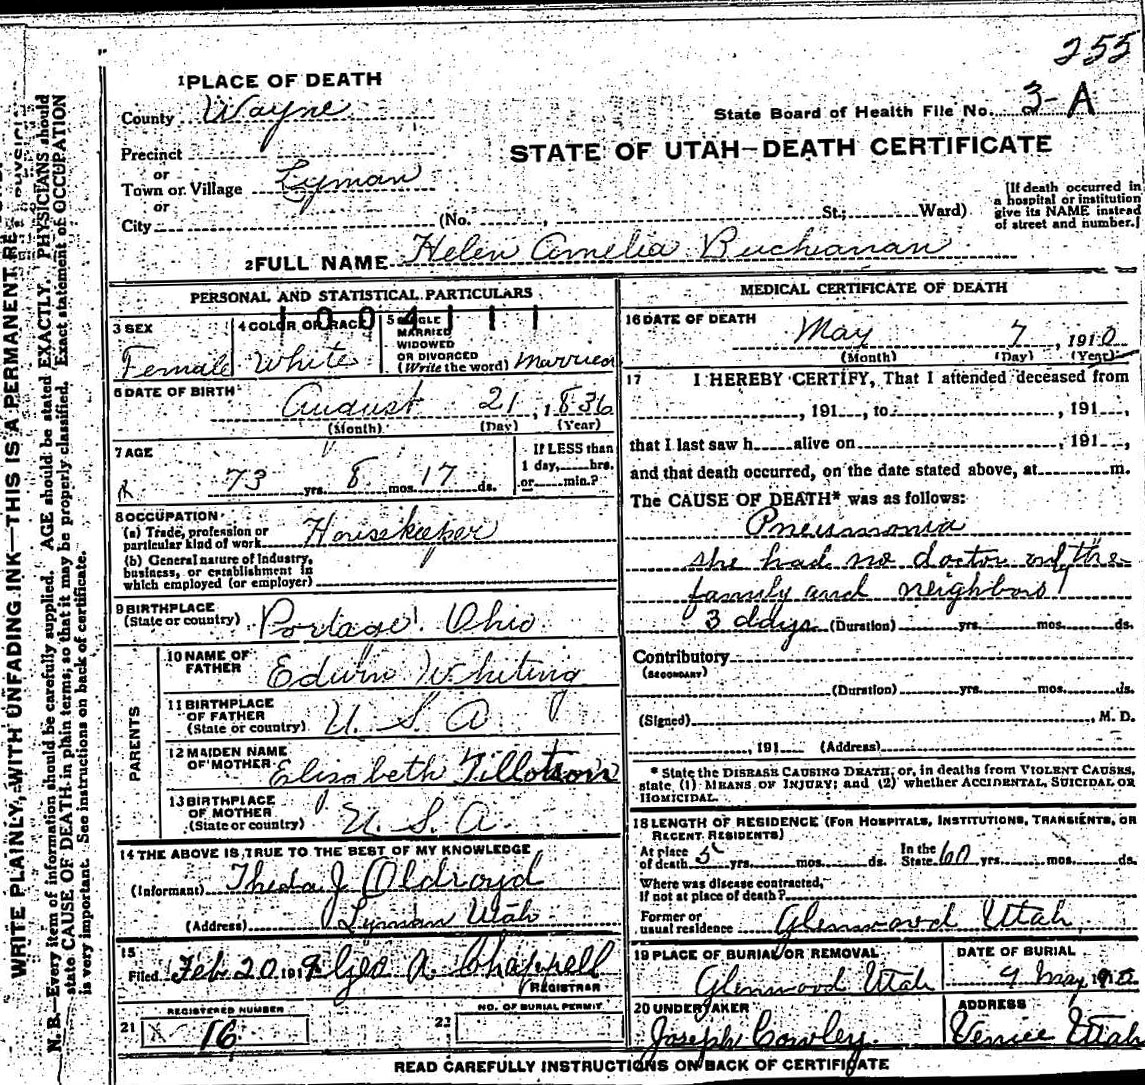 255
1 PLACE OF DEATH
County Wayne
State Board of Health File No. 3-A
Precinct
or
Town or Village Lyman
or
City (No. , St.; Ward)
STATE OF UTAH—DEATH CERTIFICATE
[If death occurred in
a hospital or institution
give its NAME instead
of street and number.]
2 FULL NAME Helen Amelia Buchanan
PERSONAL AND STATISTICAL PARTICULARS
1004111
3 SEX
Female
4 COLOR OR RACE
White
5 SINGLE
MARRIED
WIDOWED
OR DIVORCED
(Write the word) Married
6 DATE OF BIRTH
August 21, 1836
(Month) (Day) (Year)
7 AGE
73 yrs. 8 mos. 17 ds.
If LESS than
1 day, hrs.
or min.?
8 OCCUPATION
(a) Trade, profession or
particular kind of work Housekeeper
(b) General nature of industry,
business, or establishment in
which employed (or employer)
9 BIRTHPLACE
(State or country) Portage Ohio
PARENTS
10 NAME OF
FATHER Edwin Whiting
11 BIRTHPLACE
OF FATHER
(State or country) U. S. A
12 MAIDEN NAME
OF MOTHER Elisabeth Tillotson
13 BIRTHPLACE
OF MOTHER
(State or country) U. S. A
14 THE ABOVE IS TRUE TO THE BEST OF MY KNOWLEDGE
(Informant) Theda J Oldroyd
(Address) Lyman Utah
15
Filed Feb. 20 191 Geo A Chappell
REGISTRAR
21 REGISTERED NUMBER
16
22 NO. OF BURIAL PERMIT
MEDICAL CERTIFICATE OF DEATH
16 DATE OF DEATH
May 7, 1910
(Month) (Day) (Year)
17 I HEREBY CERTIFY, That I attended deceased from
, 191 , to , 191 ,
that I last saw h alive on , 191 ,
and that death occurred, on the date stated above, at m.
The CAUSE OF DEATH* was as follows:
Pneumonia
she had no doctor only the
family and neighbors
3 days (Duration) yrs. mos. ds.
Contributory
(SECONDARY)
(Duration) yrs. mos. ds.
(Signed) , M. D.
, 191 (Address)
* State the DISEASE CAUSING DEATH; or, in deaths from VIOLENT CAUSES,
state (1) MEANS OF INJURY; and (2) whether ACCIDENTAL, SUICIDAL OR
HOMICIDAL.
18 LENGTH OF RESIDENCE (FOR HOSPITALS, INSTITUTIONS, TRANSIENTS, OR
RECENT RESIDENTS)
At place
of death 5 yrs. mos. ds.
In the
State 60 yrs. mos. ds.
Where was disease contracted,
If not at place of death?
Former or
usual residence Glenwood Utah
19 PLACE OF BURIAL OR REMOVAL
Glenwood Utah
DATE OF BURIAL
9 May 1910
20 UNDERTAKER
Joseph Cowley
ADDRESS
Venice Utah
READ CAREFULLY INSTRUCTIONS ON BACK OF CERTIFICATE
WRITE PLAINLY, WITH UNFADING INK—THIS IS A PERMANENT RE
N. B.—Every item of information should be carefully supplied. AGE should be stated EXACTLY. PHYSICIANS should
state CAUSE OF DEATH in plain terms, so that it may be properly classified. Exact statement of OCCUPATION
is very important. See instructions on back of certificate.